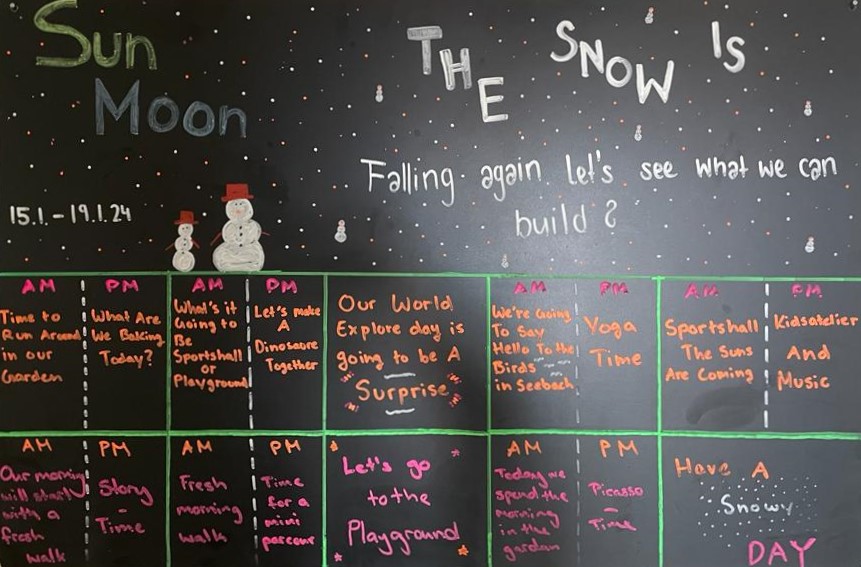 Sun
Moon
THE SNOW IS
Falling again let's see what we can
build?
15.1. - 19.1.24
AM
Time to
Run Around
in our
Garden
PM
What Are
We Baking
Today?
AM
What's it
Going to
Be
Sportshall
or
Playground
PM
Let's make
A
Dinosaore
Together
Our World
Explore day is
going to be A
Surprise
AM
We're Going
To Say
Hello To the
Birds
in Seebach
PM
Yoga
Time
AM
Sportshall
The Suns
Are Coming
PM
Kidsatelier
And
Music
AM
Our morning
will start
with a
fresh
walk
PM
Story
-
Time
AM
Fresh
morning
walk
PM
Time
for a
mini
parcour
Let's go
to the
Playground
AM
Today we
spend the
morning
in the
garden
PM
Picasso
-
Time
Have A
Snowy
DAY